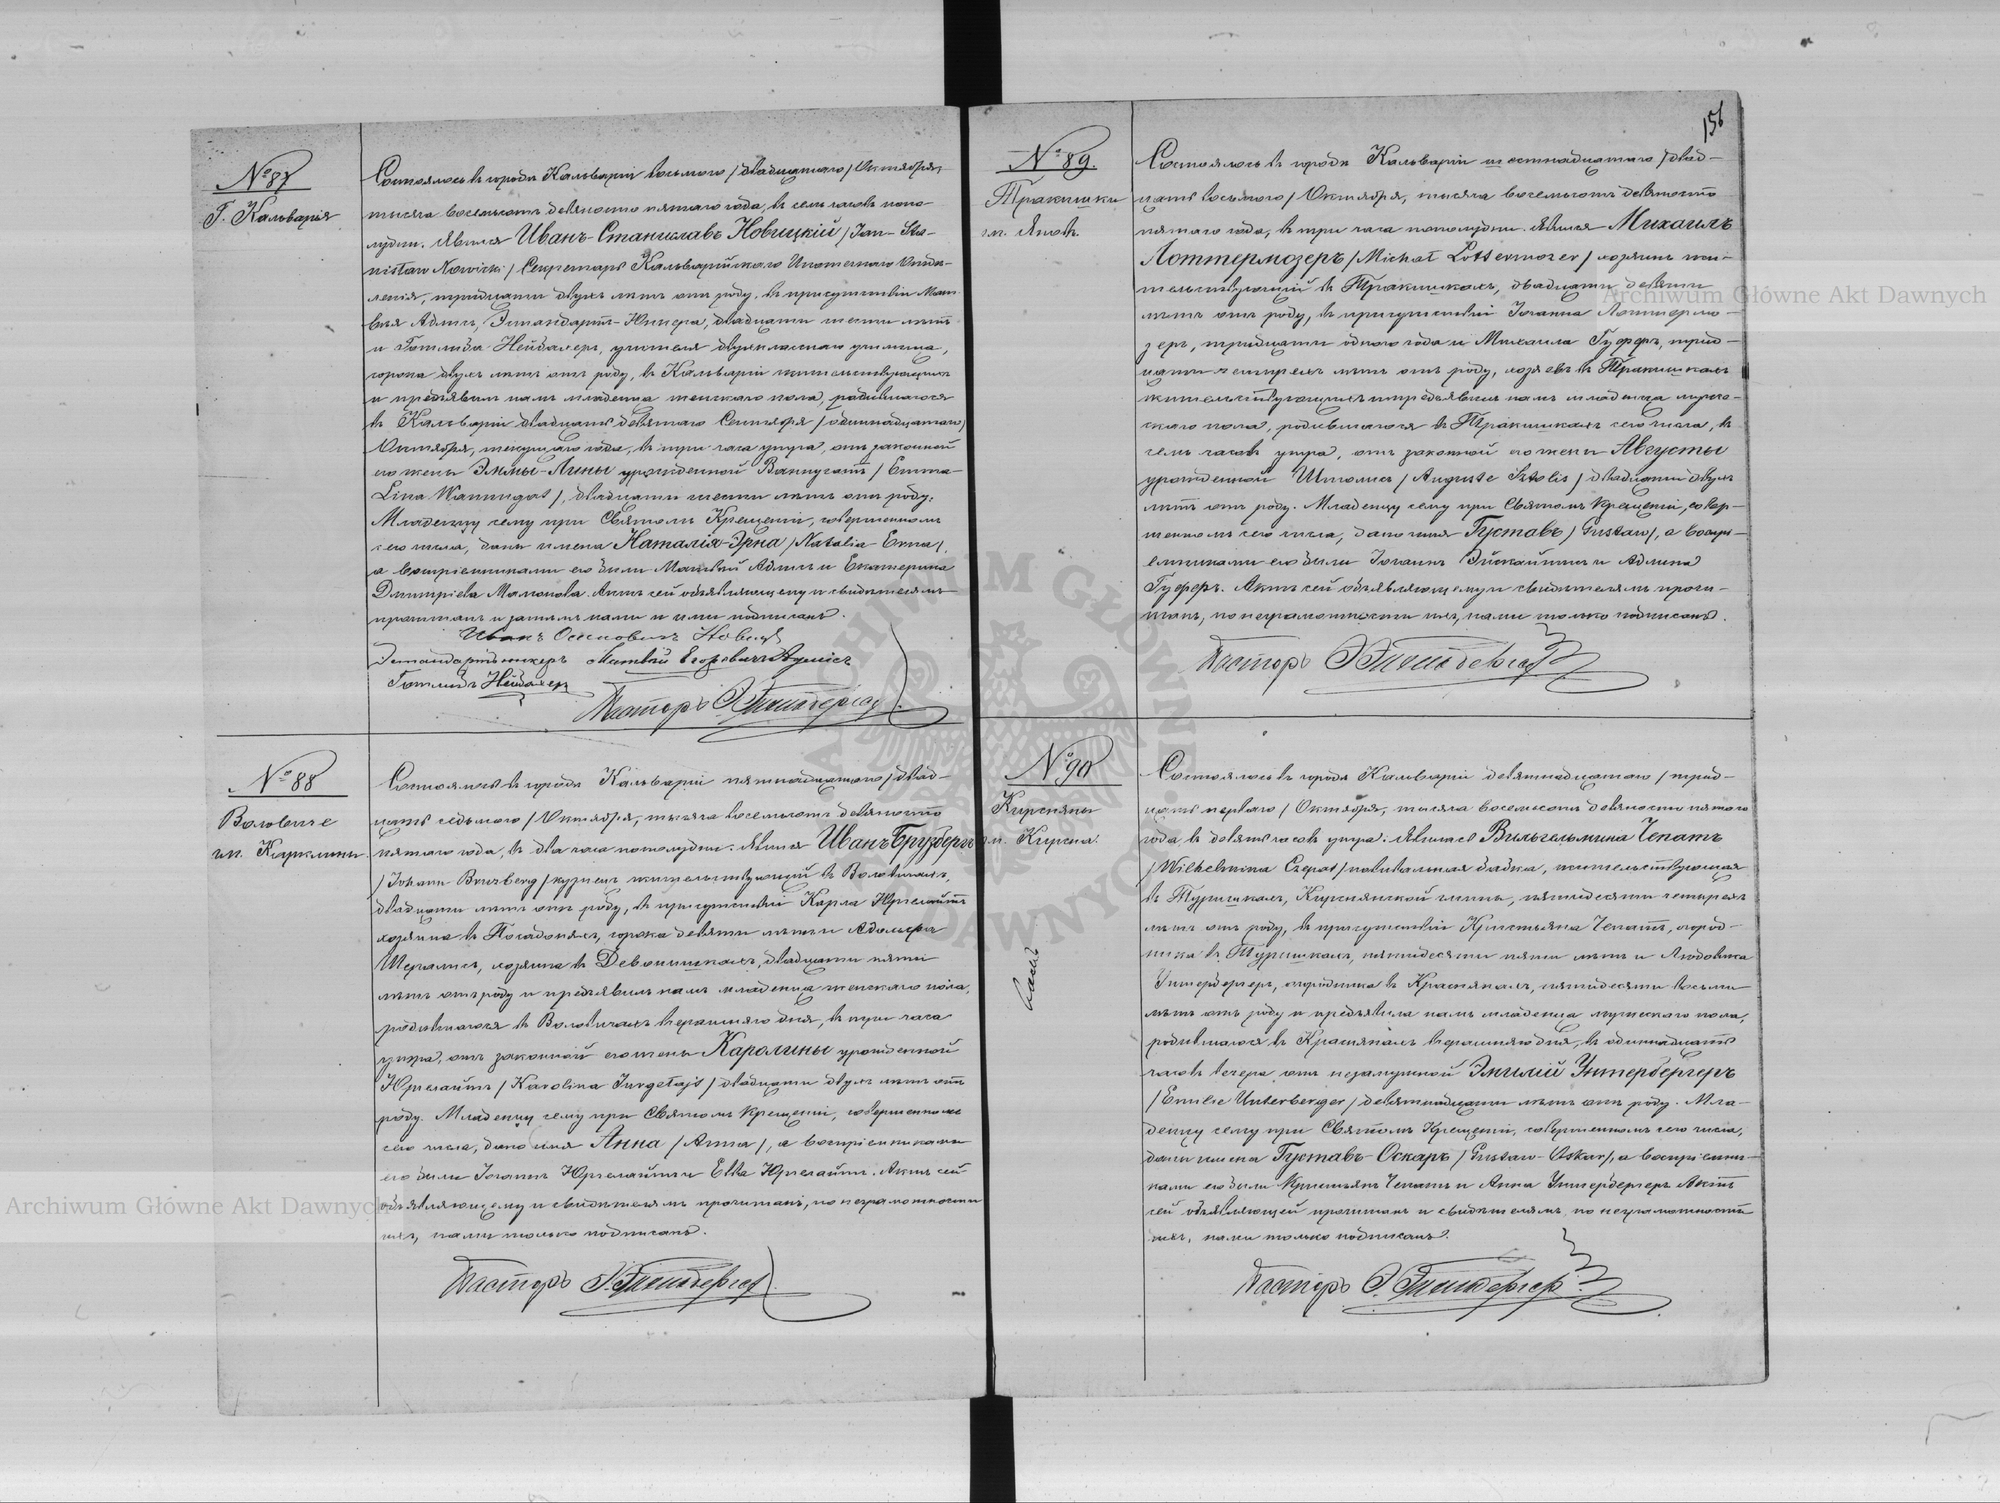 № 87
Г. Кальварія
Состоялось въ городѣ Кальваріи восьмого /двадцатаго/ Октября,
тысяча восемьсотъ девяносто пятаго года, въ семь часовъ попо-
лудни. Явился Иванъ-Станиславъ Новицкій /Jan-Sta-
nisław Nowicki/ Секретарь Кальварійскаго Ипотечнаго Отдѣ-
ленія, тридцати двухъ лѣтъ отъ роду, въ присутствіи Мат-
вѣя Адлисъ, Эстандартъ-Юнкера, двадцати шести лѣтъ
и Готлиба Нейбахеръ, учителя двухкласснаго училища,
сорока двухъ лѣтъ отъ роду, въ Кальваріи жительствующихъ
и предъявилъ намъ младенца женскаго пола, родившагося
въ Кальваріи двадцать девятаго Сентября /одиннадцатаго/
Октября, текущаго года, въ три часа утра, отъ законной
его жены Эммы-Лины урожденной Ваннугатъ /Emma-
Lina Wannugat/, двадцати шести лѣтъ отъ роду.
Младенцу сему при Святомъ Крещеніи, совершенномъ
сего числа, даны имена Наталія-Эрна /Natalia-Erna/,
а воспріемниками его были Матвѣй Адлисъ и Екатерина
Дмитріева Мамонова. Актъ сей объявляющему и свидѣтелямъ
прочитанъ и затѣмъ нами и ими подписанъ.
Иванъ Осиповичъ Новицкій
Эстандартъ юнкеръ Матвѣй Егоровичъ
Готлибъ Нейбахеръ
Пасторъ
№ 88
Воловиче
гм. Карклины
Состоялось въ городѣ Кальваріи пятнадцатаго /двад-
цать седьмого/ Октября, тысяча восемьсотъ девяносто
пятаго года, въ два часа пополудни. Явился Иванъ Брузбергъ
/Johann Bruzberg/ кузнецъ жительствующій въ Воловичахъ,
двадцати лѣтъ отъ роду, въ присутствіи Карла Юргелайтъ
хозяина въ сорока девяти лѣтъ и Адольфа
хозяина въ двадцати пяти
лѣтъ отъ роду и предъявилъ намъ младенца женскаго пола,
родившагося въ Воловичахъ вчерашняго дня, въ три часа
утра, отъ законной его жены Каролины урожденной
Юргелайтъ /Karolina Jurgelajt/ двадцати двухъ лѣтъ отъ
роду. Младенцу сему при Святомъ Крещеніи, совершенномъ
сего числа, дано имя Анна /Anna/, а воспріемниками
его были Іоганнъ Юргелайтъ и Elta Юргелайтъ. Актъ сей
объявляющему и свидѣтелямъ прочитанъ, по неграмотности
ихъ, нами только подписанъ.
Пасторъ
156
№ 89.
Тракишки
гм. Яновъ.
Состоялось въ городѣ Кальваріи шестнадцатаго /двад-
цать восьмого/ Октября, тысяча восемьсотъ девяносто
пятаго года, въ три часа пополудни. Явился Михаилъ
Лоттермозеръ /Michał Lottermozer/ хозяинъ жи-
тельствующій въ Тракишкахъ, двадцати девяти
лѣтъ отъ роду, въ присутствіи Іоганна Лоттермо-
зеръ, тридцати одного года и Михаила Гуферъ, трид-
цати четырехъ лѣтъ отъ роду, хозяевъ въ Тракишкахъ
жительствующихъ и предъявилъ намъ младенца муже-
скаго пола, родившагося въ Тракишкахъ сего числа, въ
семь часовъ утра, отъ законной его жены Августы
урожденной Штолисъ /Auguste Sztolis/ двадцати двухъ
лѣтъ отъ роду. Младенцу сему при Святомъ Крещеніи, совер-
шенномъ сего числа, дано имя Густавъ /Gustaw/, а воспрі-
емниками его были Іоганнъ и Адлина
Гуферъ. Актъ сей объявляющему и свидѣтелямъ прочи-
танъ, по неграмотности ихъ, нами только подписанъ.
Пасторъ
№ 90
Кирсняны
гм. Кирсна.
Состоялось въ городѣ Кальваріи девятнадцатаго /трид-
цать перваго/ Октября, тысяча восемьсотъ девяносто пятаго
года въ девять часовъ утра. Явилась Вильгельмина Чепатъ
/Wilhelmina Czepat/ повивальная бабка, жительствующая
въ Туришкахъ, Кирснянской гмины, пятидесяти четырехъ
лѣтъ отъ роду, въ присутствіи Кристьяна Чепатъ, огород-
ника въ Туришкахъ, пятидесяти пяти лѣтъ и Людовика
Унтербергеръ, огородника въ пятидесяти восьми
лѣтъ отъ роду и предъявила намъ младенца мужескаго пола,
родившагося въ вчерашняго дня, въ одиннадцать
часовъ вечера отъ незамужней Эмиліи Унтербергеръ
/Emilie Unterberger/ девятнадцати лѣтъ отъ роду. Мла-
денцу сему при Святомъ Крещеніи, совершенномъ сего числа,
даны имена Густавъ-Оскаръ /Gustaw-Oskar/, а воспріемни-
ками его были Кристьянъ Чепатъ и Анна Унтербергеръ. Актъ
сей объявляющей прочитанъ и свидѣтелямъ, по неграмотности
ихъ, нами только подписанъ.
Пасторъ
Archiwum Główne Akt Dawnych
Archiwum Główne Akt Dawnych
ARCHIWUM GŁÓWNE AKT DAWNYCH